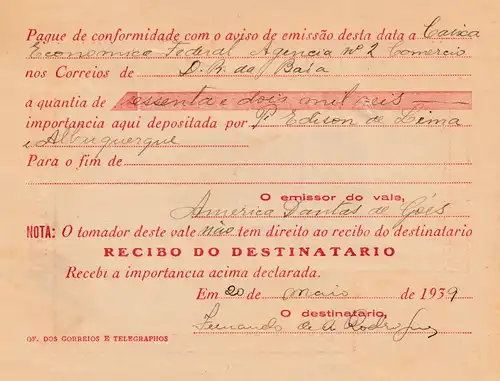 Pague de conformidade com o aviso de emissão desta data a Caixa
Economica Federal Agencia nº 2 Comercio
nos Correios de D. R. da Baía
a quantia de sessenta e dois mil reis
importancia aqui depositada por P. Edison de Lima
e Albuquerque
Para o fim de
O emissor do vale,
America Dantas de Góes
NOTA: O tomador deste vale não tem direito ao recibo do destinatario
RECIBO DO DESTINATARIO
Recebi a importancia acima declarada.
Em 20 de maio de 1939
O destinatário,
Fernando de A. Rodrigues
OF. DOS CORREIOS E TELEGRAPHOS